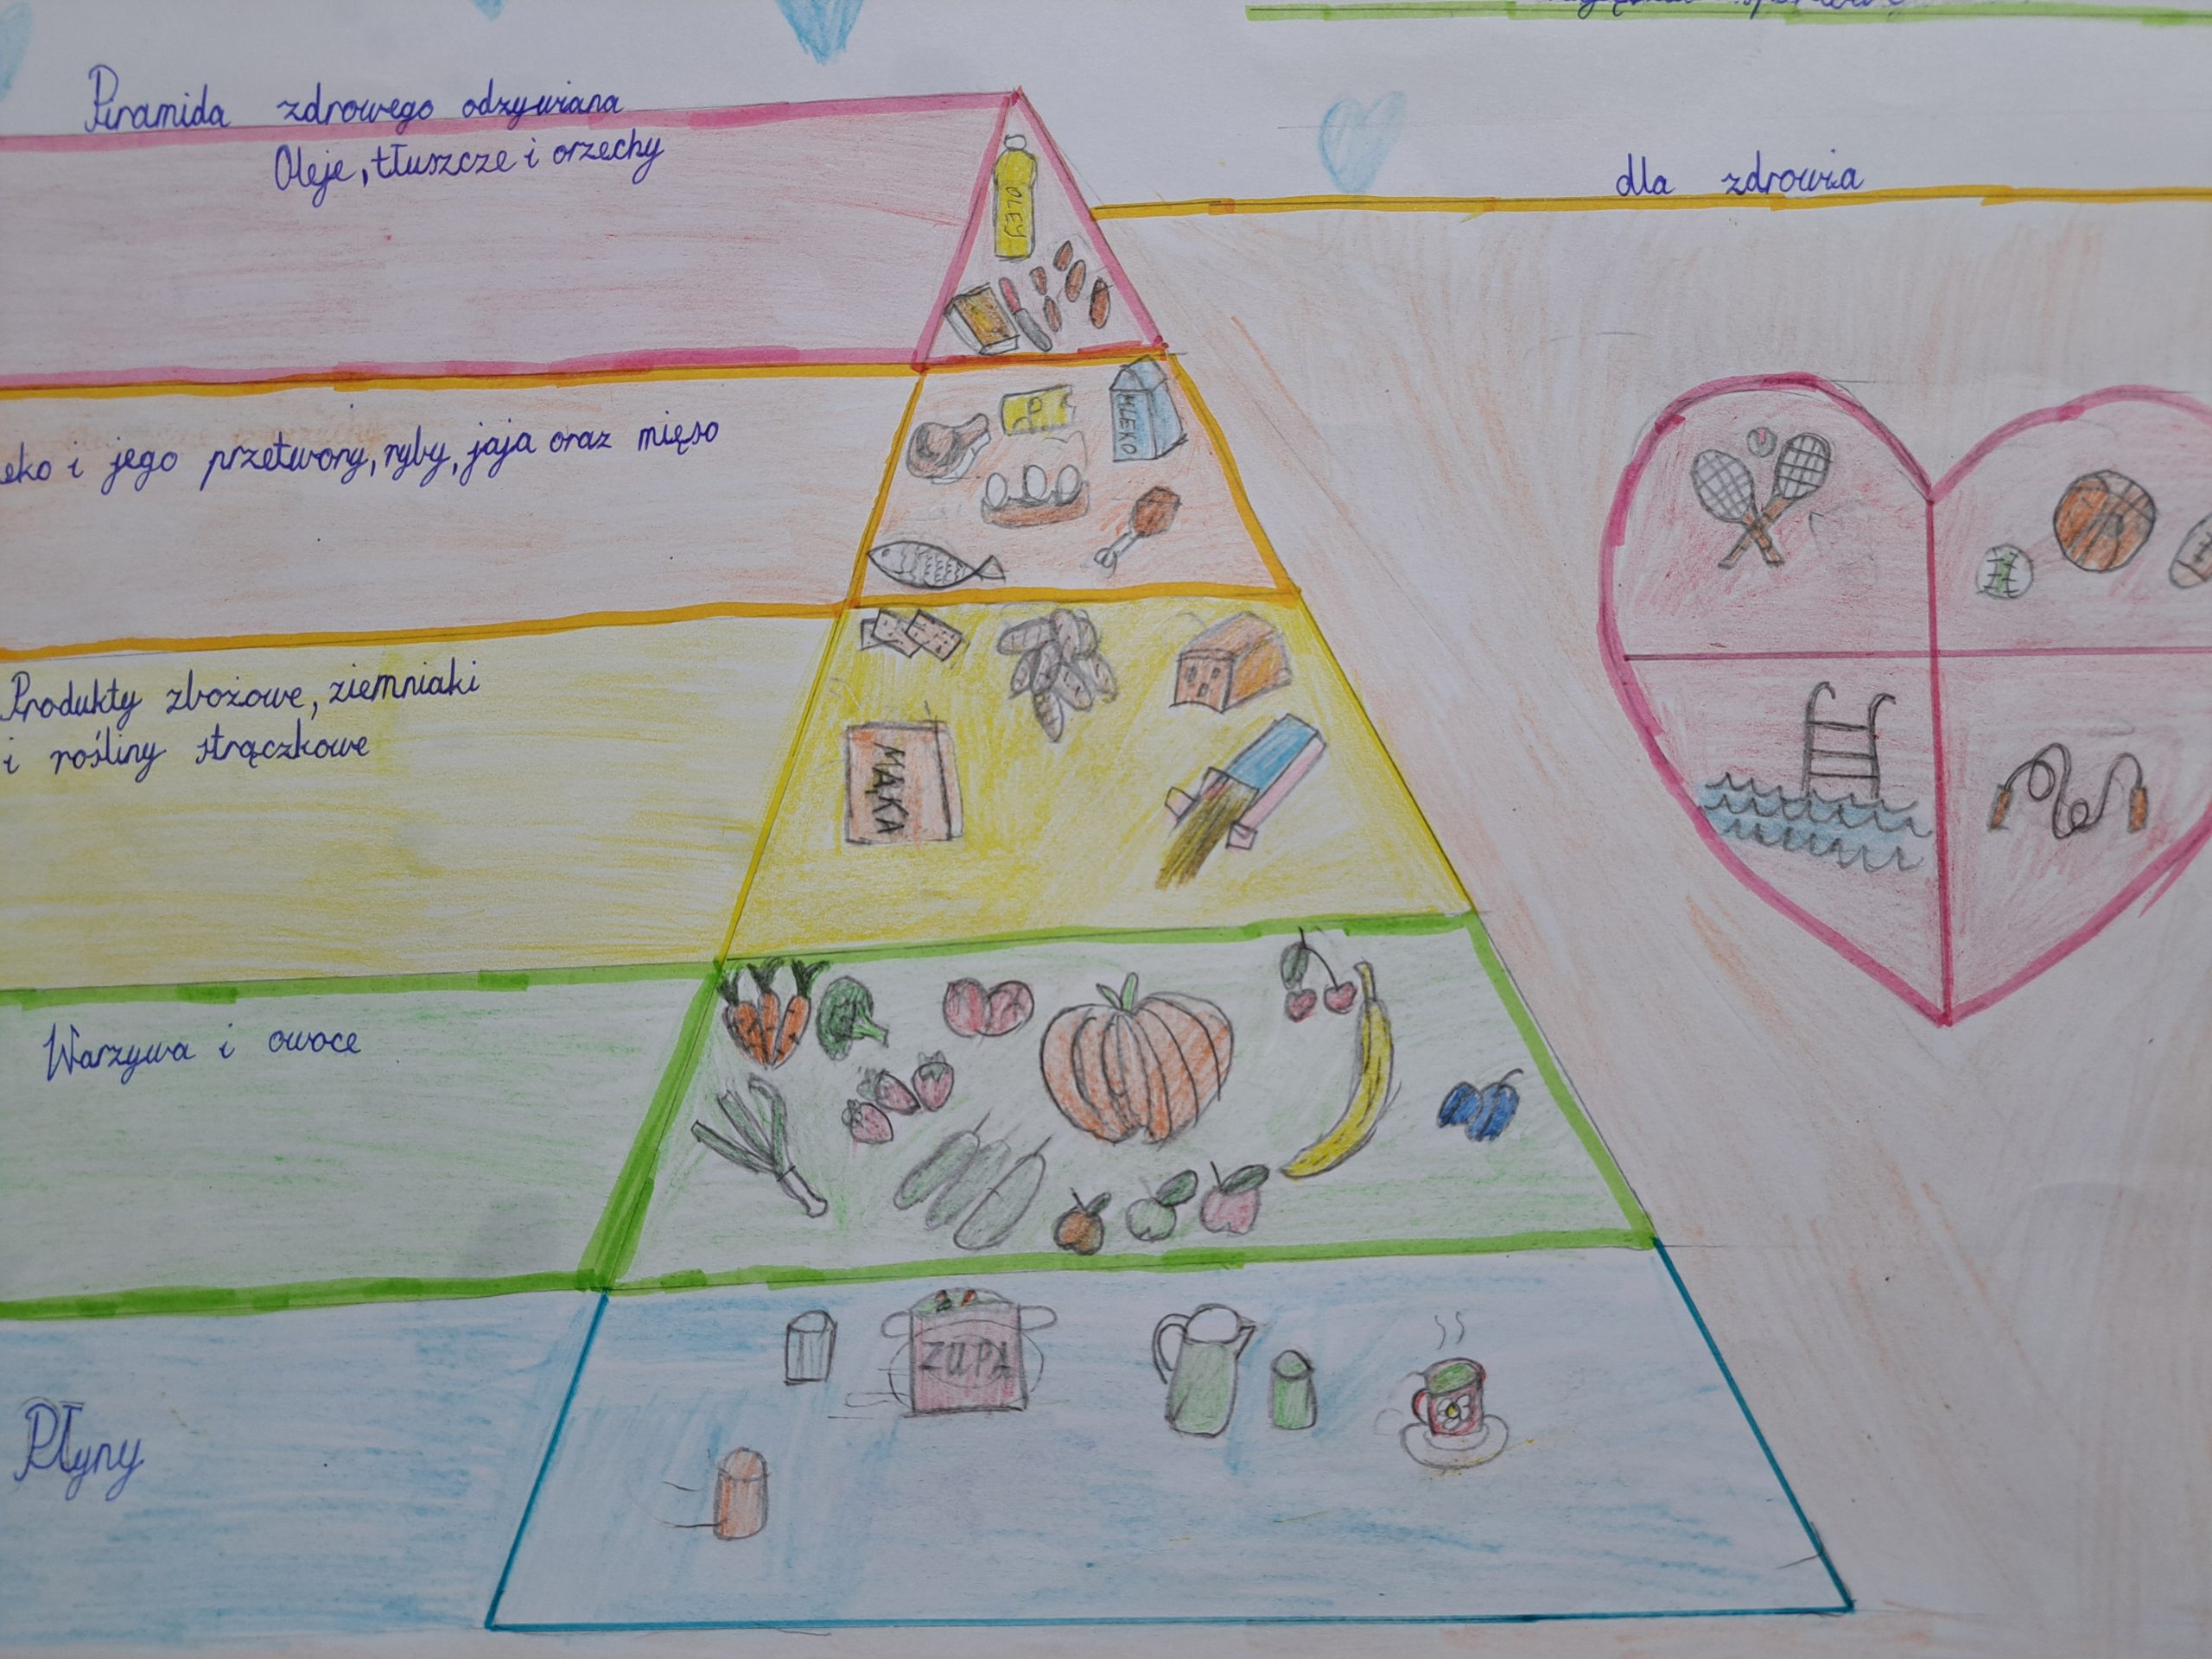 Piramida zdrowego odzywiana
Oleje, tłuszcze i orzechy
dla zdrowia
OLEJ
eko i jego przetwory, ryby, jaja oraz mięso
MLEKO
Produkty zbożowe, ziemniaki
i rośliny strączkowe
MĄKA
Warzywa i owoce
ZUPA
Płyny